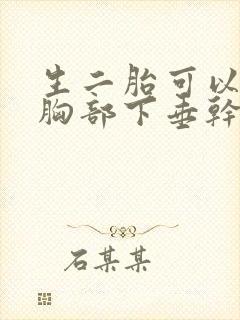 生二胎可以
胸部下垂幹
石某某